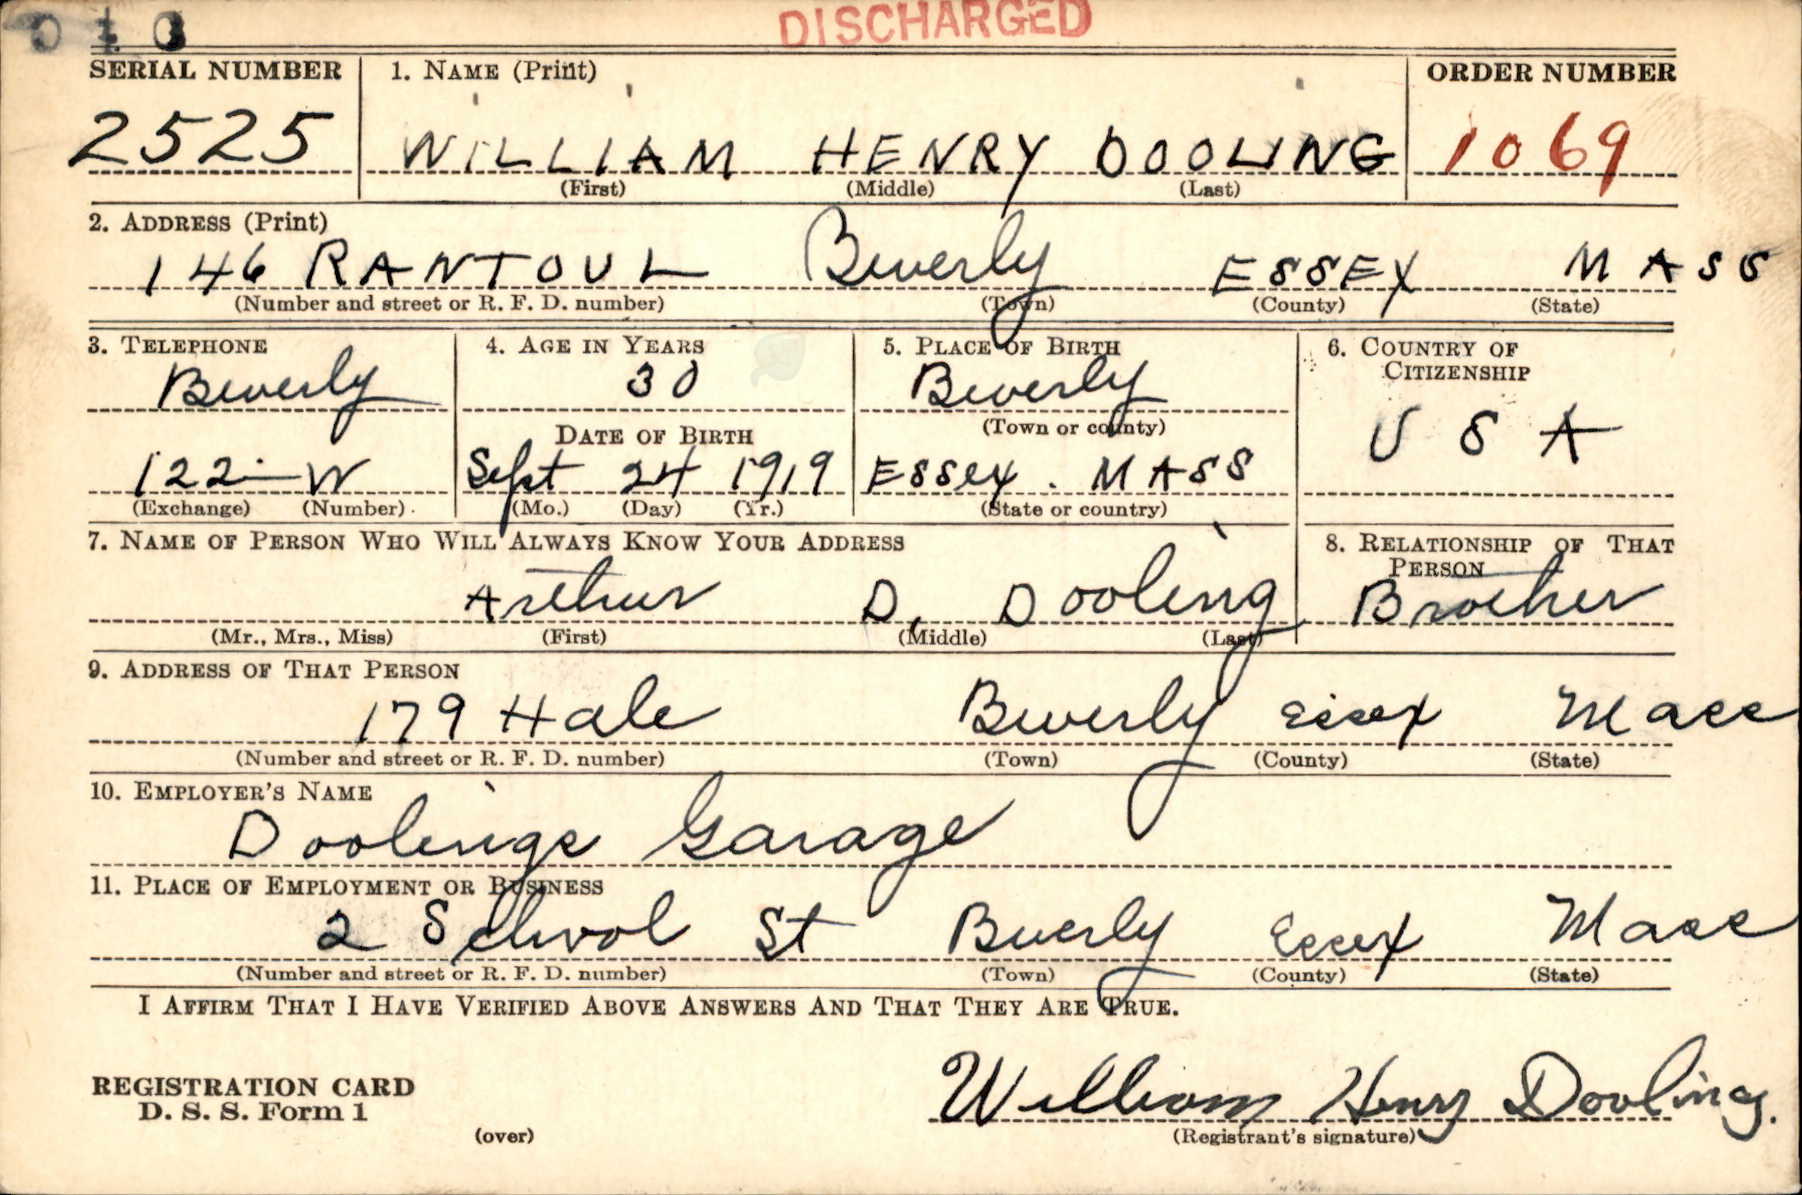 DISCHARGED
SERIAL NUMBER 1. NAME (Print) ORDER NUMBER
2525 WILLIAM HENRY DOOLING 1069
(First) (Middle) (Last)
2. ADDRESS (Print)
146 RANTOUL Beverly ESSEX MASS
(Number and street or R. F. D. number) (Town) (County) (State)
3. TELEPHONE 4. AGE IN YEARS 5. PLACE OF BIRTH 6. COUNTRY OF CITIZENSHIP
Beverly 30 Beverly U S A
DATE OF BIRTH (Town or county)
122-W Sept 24 1919 Essex. MASS
(Exchange) (Number) (Mo.) (Day) (Yr.) (State or country)
7. NAME OF PERSON WHO WILL ALWAYS KNOW YOUR ADDRESS 8. RELATIONSHIP OF THAT PERSON
Arthur D. Dooling Brother
(Mr., Mrs., Miss) (First) (Middle) (Last)
9. ADDRESS OF THAT PERSON
179 Hale Beverly Essex Mass
(Number and street or R. F. D. number) (Town) (County) (State)
10. EMPLOYER'S NAME
Doolings Garage
11. PLACE OF EMPLOYMENT OR BUSINESS
2 School St Beverly Essex Mass
(Number and street or R. F. D. number) (Town) (County) (State)
I AFFIRM THAT I HAVE VERIFIED ABOVE ANSWERS AND THAT THEY ARE TRUE.
REGISTRATION CARD
D. S. S. Form 1
William Henry Dooling.
(over) (Registrant's signature)